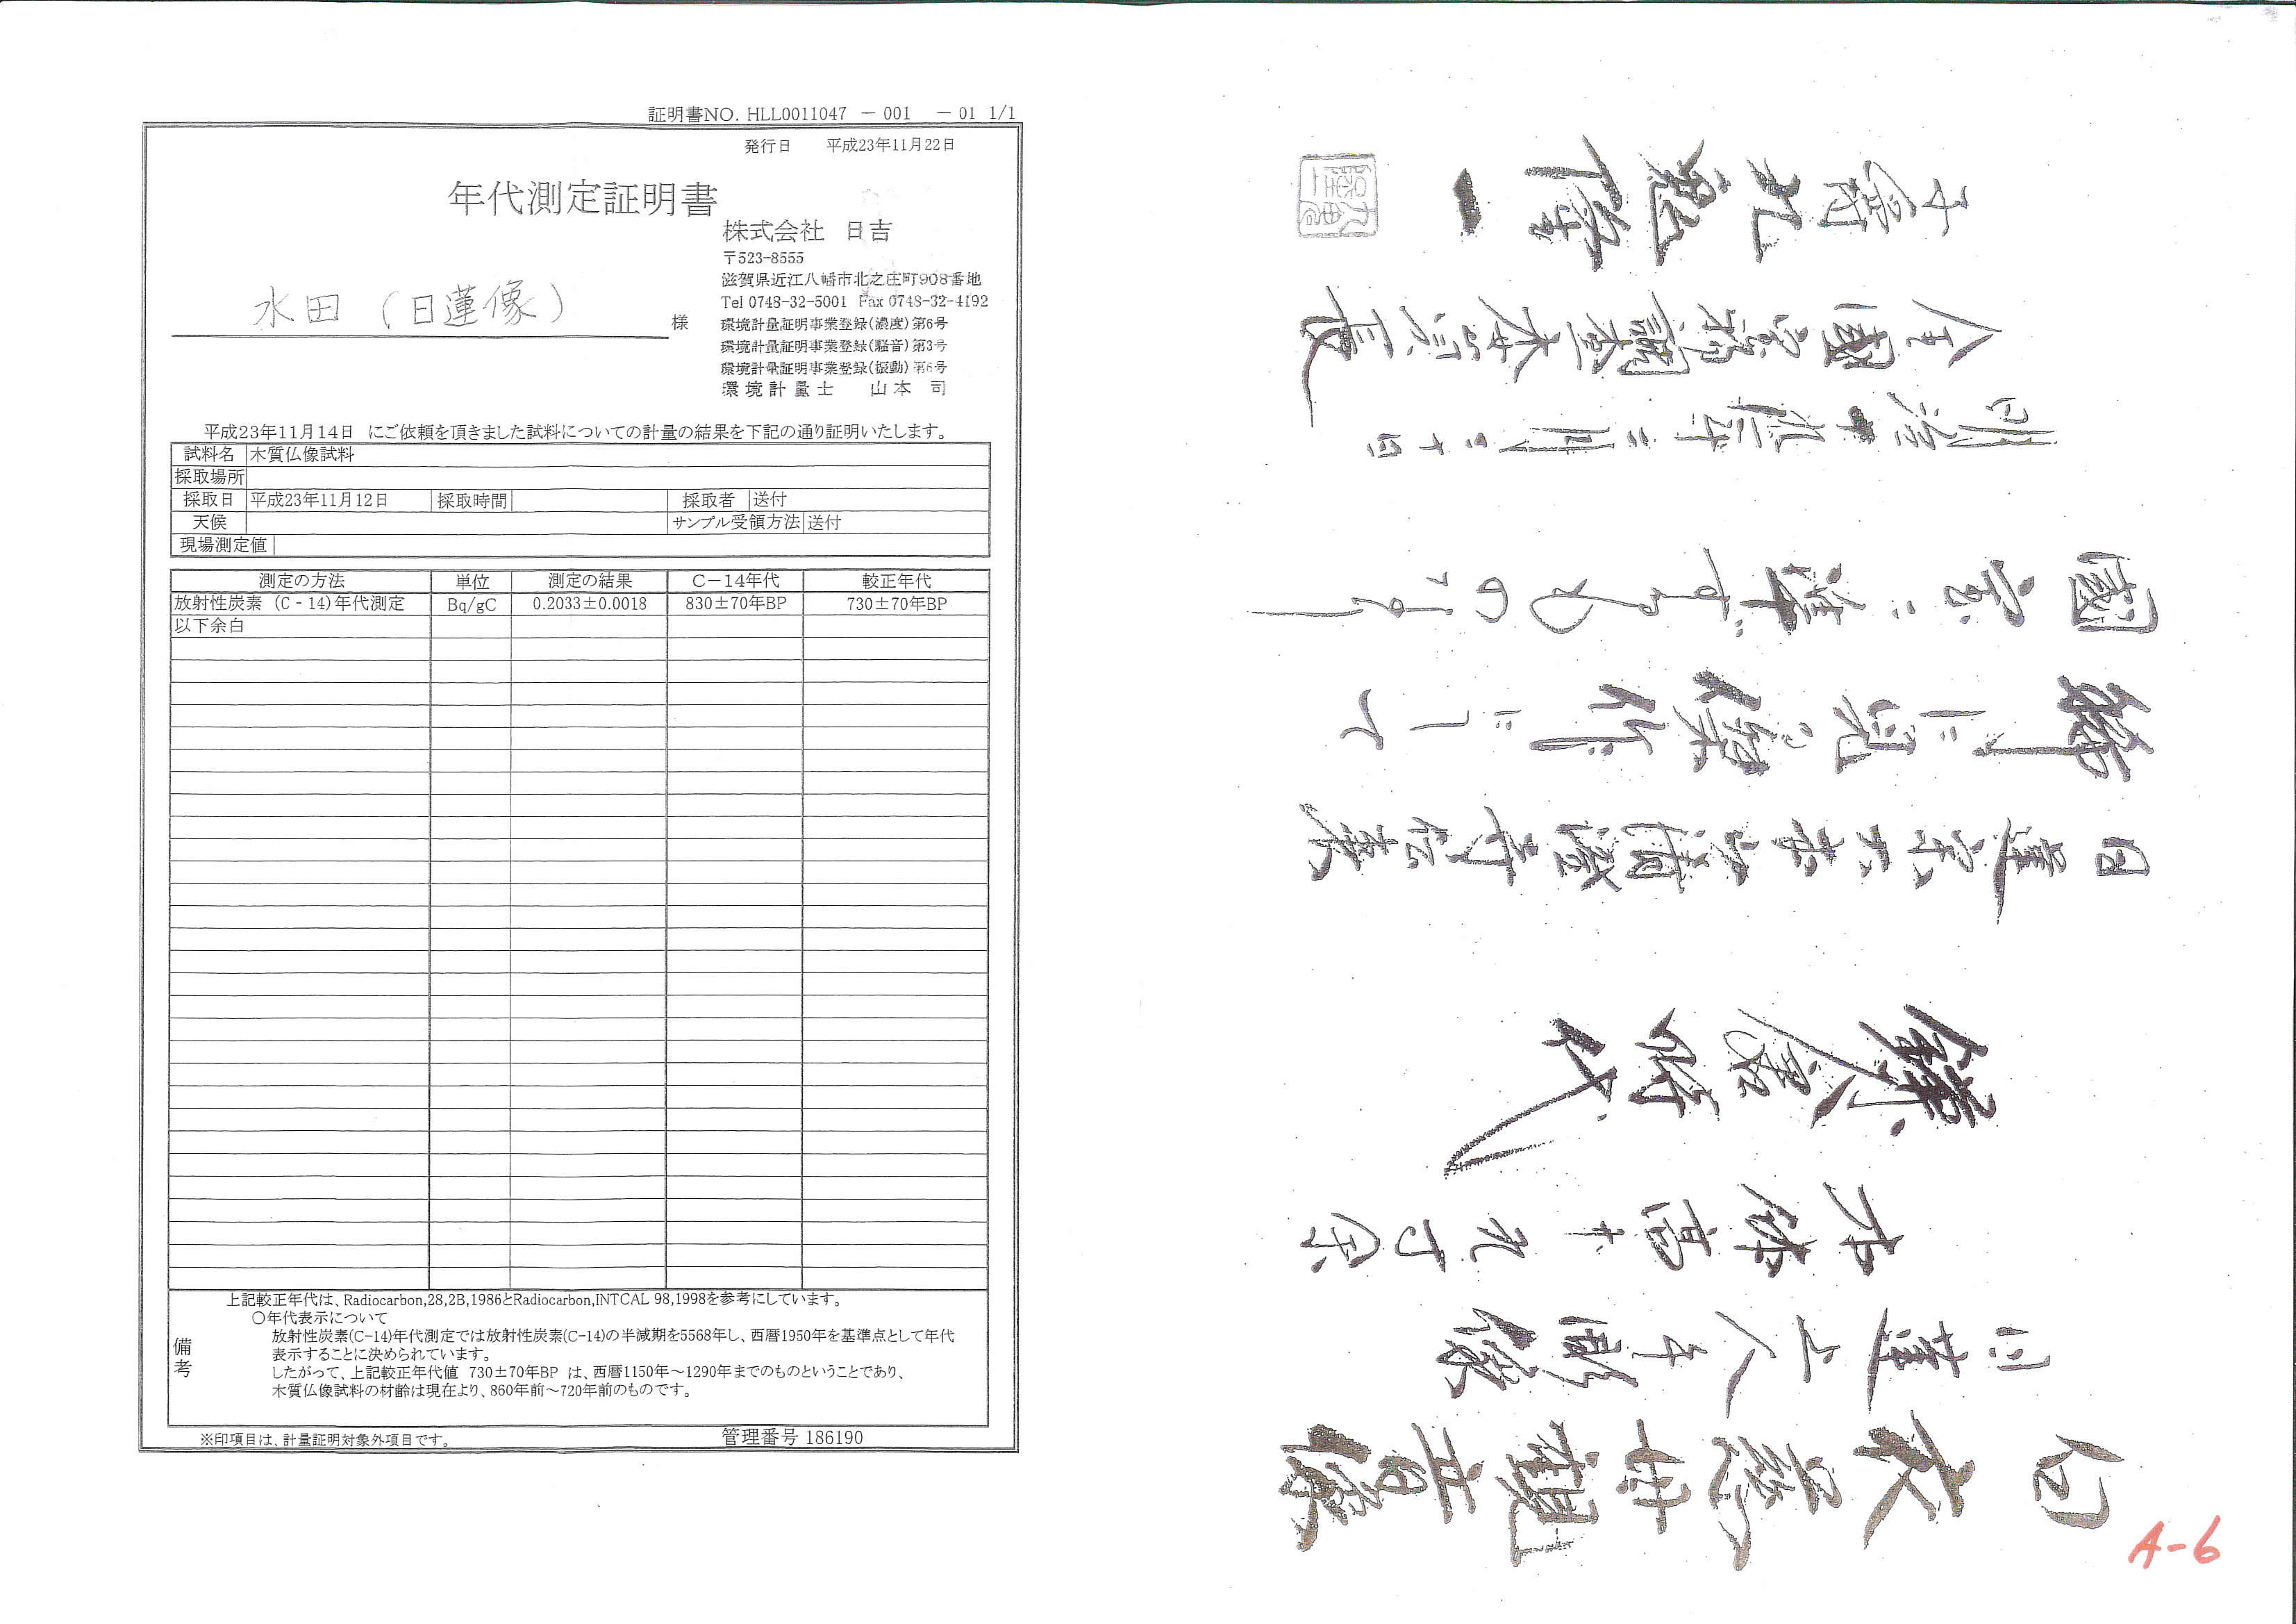 証明書NO. HLL0011047 －001 －01 1/1
発行日 平成23年11月22日
年代測定証明書
株式会社 日吉
〒523-8555
滋賀県近江八幡市北之庄町908番地
Tel 0748-32-5001 Fax 0748-32-4192
水田（日蓮像） 様
環境計量証明事業登録(濃度)第6号
環境計量証明事業登録(騒音)第3号
環境計量証明事業登録(振動)第6号
環境計量士 山本 司
平成23年11月14日 にご依頼を頂きました試料についての計量の結果を下記の通り証明いたします。
試料名 木質仏像試料
採取場所
採取日 平成23年11月12日 採取時間 採取者 送付
天候 サンプル受領方法 送付
現場測定値
測定の方法 単位 測定の結果 C－14年代 較正年代
放射性炭素（C‐14）年代測定 Bq/gC 0.2033±0.0018 830±70年BP 730±70年BP
以下余白
備考
上記較正年代は、Radiocarbon,28,2B,1986とRadiocarbon,INTCAL 98,1998を参考にしています。
〇年代表示について
放射性炭素(C-14)年代測定では放射性炭素(C-14)の半減期を5568年し、西暦1950年を基準点として年代
表示することに決められています。
したがって、上記較正年代値 730±70年BP は、西暦1150年～1290年までのものということであり、
木質仏像試料の材齢は現在より、860年前～720年前のものです。
※印項目は、計量証明対象外項目です。
管理番号 186190
白衣 観音像
日蓮上人手彫像
鎌倉時代
日蓮宗大本山清澄寺伝来
傑作ニシテ
國宝ニ準ずるものなり
明治
全國宝物
子爵九鬼隆一
A-6